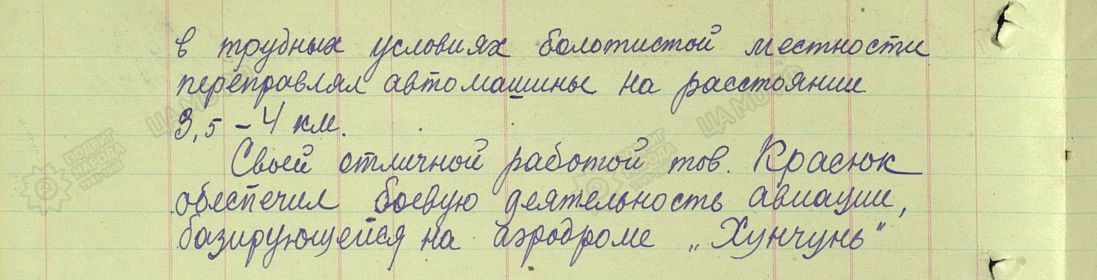 в трудных условиях болотистой местности
переправлял автомашины на расстоянии
3,5-4 км.
Своей отличной работой тов. Красюк
обеспечил боевую деятельность авиации,
базирующейся на аэродроме „Хунчунь"